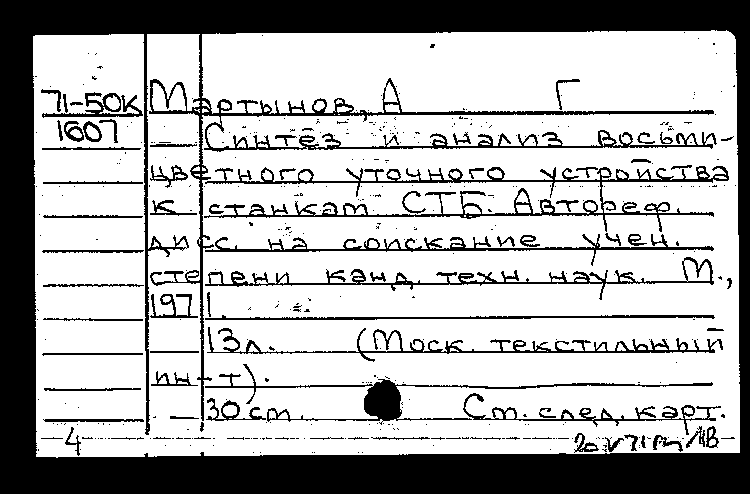 71-50к Мартынов, А Г
1607 Синтез и анализ восьми-
цветного уточного устройства
к станкам СТБ. Автореф.
дисс. на соискание учен.
степени канд. техн. наук. М.,
1971.
13л. (Моск. текстильный
ин-т).
30 см. См. след. карт.
4 20 V 71